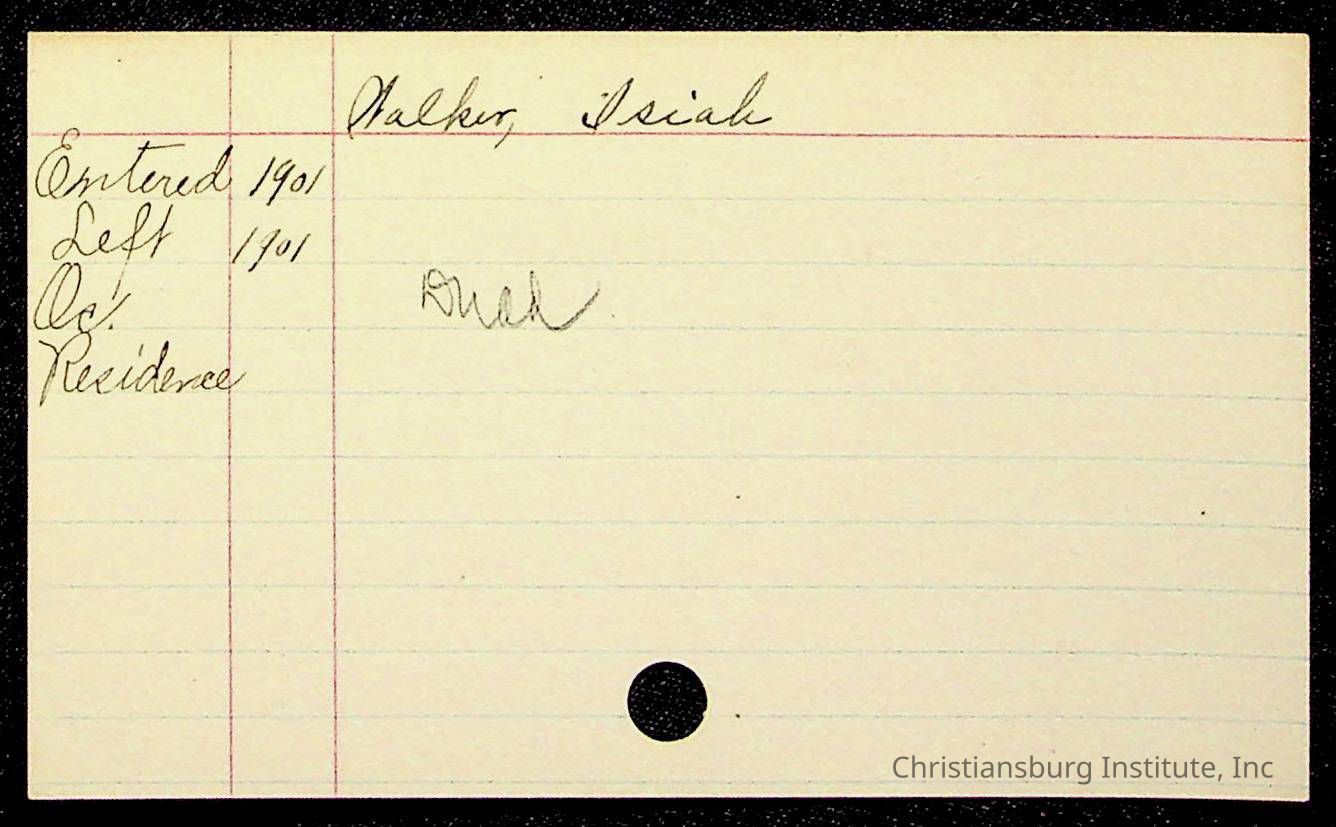 Walker, Isiah
Entered 1901
Left 1901
Oc.
Residence
Christiansburg Institute, Inc